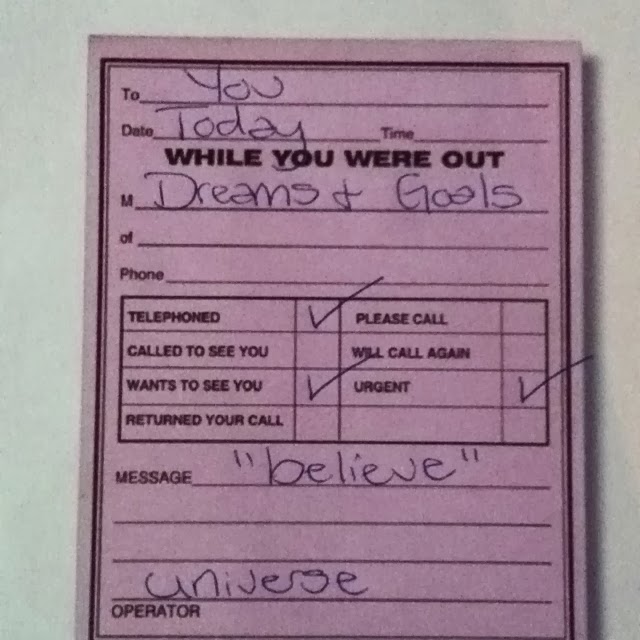 To You
Date Today Time
WHILE YOU WERE OUT
M Dreams & Goals
of
Phone
TELEPHONED ✓ PLEASE CALL
CALLED TO SEE YOU WILL CALL AGAIN
WANTS TO SEE YOU ✓ URGENT ✓
RETURNED YOUR CALL
MESSAGE "believe"
universe
OPERATOR